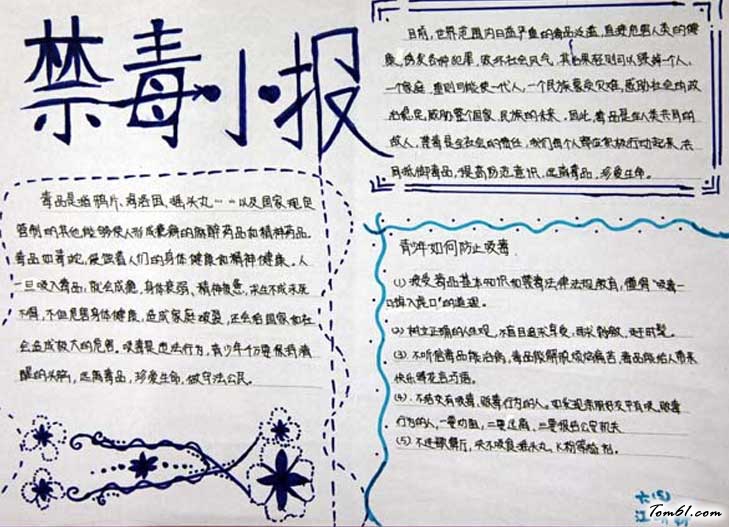 禁毒小报
毒品是指鸦片、海洛因、摇头丸……以及国家规定
管制的其他能够使人形成瘾癖的麻醉药品和精神药品。
毒品如毒蛇,侵蚀着人们的身体健康和精神健康。人
一旦吸入毒品,就会成瘾,身体衰弱、精神疲惫,求生不成求死
不得,不但危害身体健康,造成家庭破裂,还会给国家和社
会造成极大的危害。吸毒是违法行为,青少年千万要保持清
醒的头脑,远离毒品,珍爱生命,做守法公民。
目前,世界范围内日益严重的毒品泛滥,直接危害人类的健
康,诱发各种犯罪,败坏社会风气,其后果轻则可以毁掉一个人、
一个家庭,重则可能使一代人,一个民族蒙受灾难,威胁社会的政
治稳定,威胁整个国家、民族的未来。因此,毒品是全人类共同的
敌人,禁毒是全社会的责任,我们每个人都应积极行动起来,共
同抵御毒品,提高防范意识,远离毒品、珍爱生命。
青少年如何防止吸毒
(1)接受毒品基本知识和禁毒法律法规教育,懂得“吸毒一
口,掉入虎口”的道理。
(2)树立正确的人生观,不盲目追求享受,寻求刺激,赶时髦。
(3)不听信毒品能治病,毒品能解脱烦恼痛苦,毒品能给人带来
快乐等花言巧语。
(4)、不结交有吸毒、贩毒行为的人。如发现亲朋好友中有吸、贩毒
行为的人,一要劝阻,二要远离、三要报告公安机关
(5)、不进歌舞厅,决不吸食摇头丸、K粉等输剂。
六(5)
江
Tom61.com